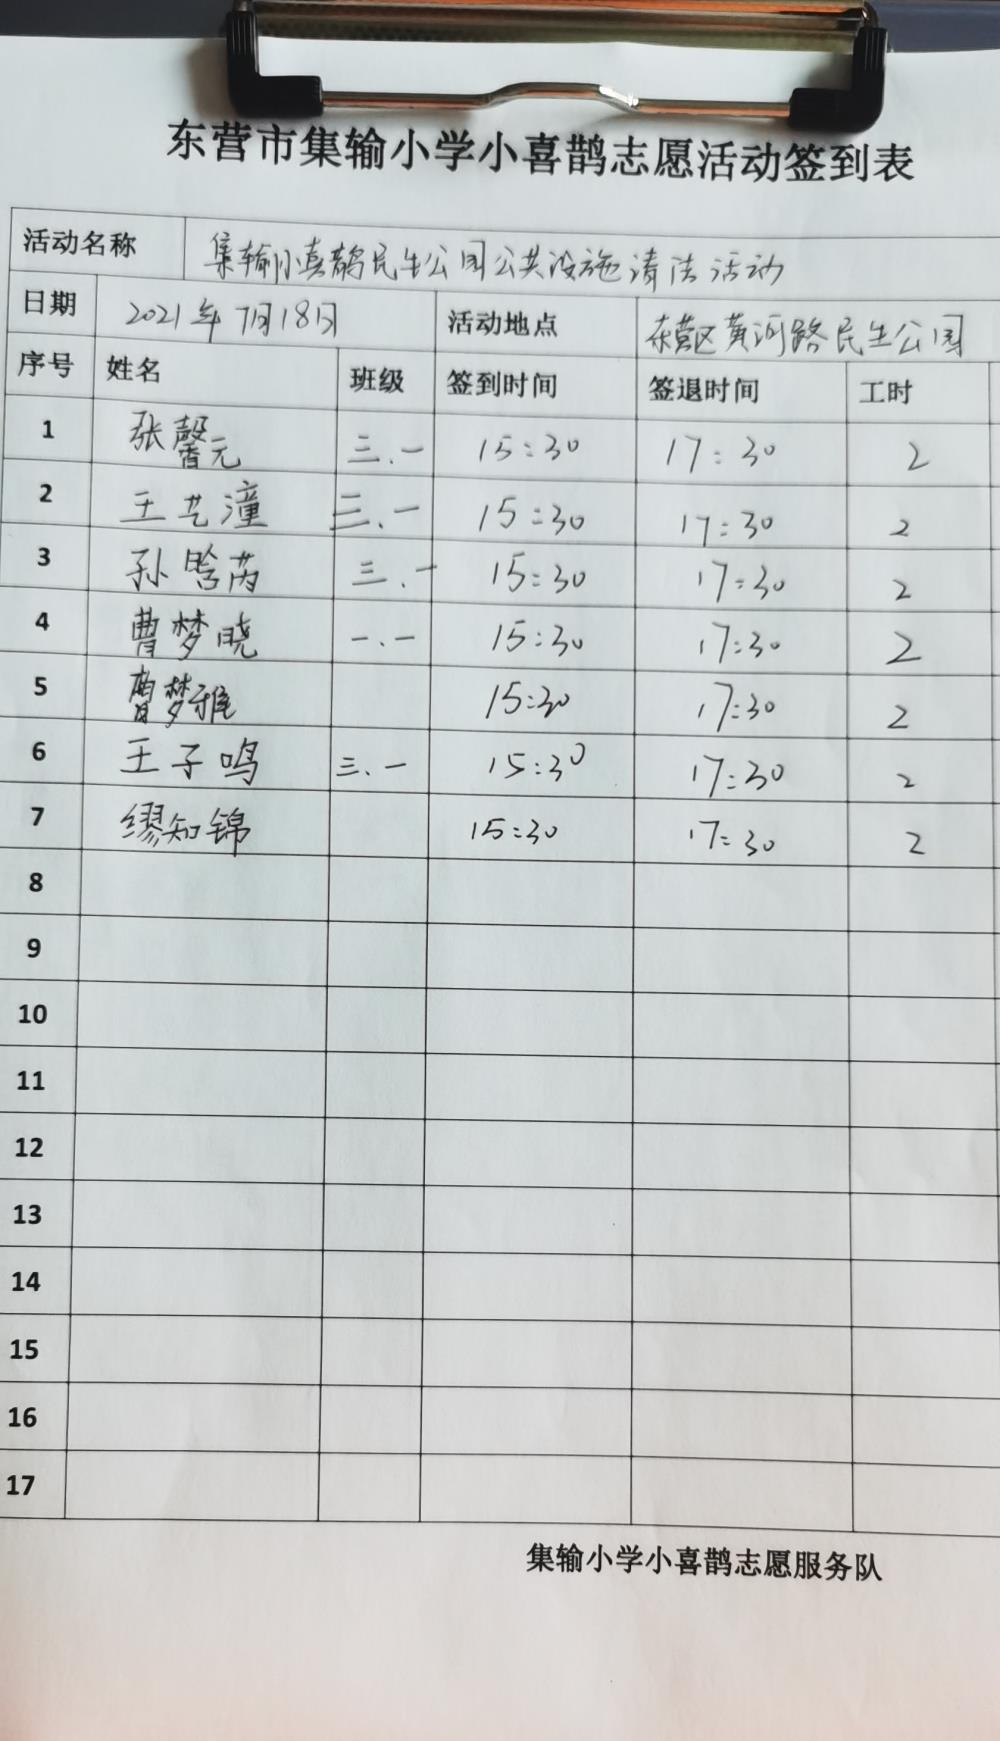 东营市集输小学小喜鹊志愿活动签到表
活动名称 集输小喜鹊民生公园公共设施清洁活动
日期 2021年7月18日 活动地点 东营区黄河路民生公园
序号 姓名 班级 签到时间 签退时间 工时
1 张馨元 三.一 15:30 17:30 2
2 王艺潼 三.一 15:30 17:30 2
3 孙晗芮 三.一 15:30 17:30 2
4 曹梦晓 一.一 15:30 17:30 2
5 曹梦雅 15:30 17:30 2
6 王子鸣 三、一 15:30 17:30 2
7 缪知锦 15:30 17:30 2
8
9
10
11
12
13
14
15
16
17
集输小学小喜鹊志愿服务队